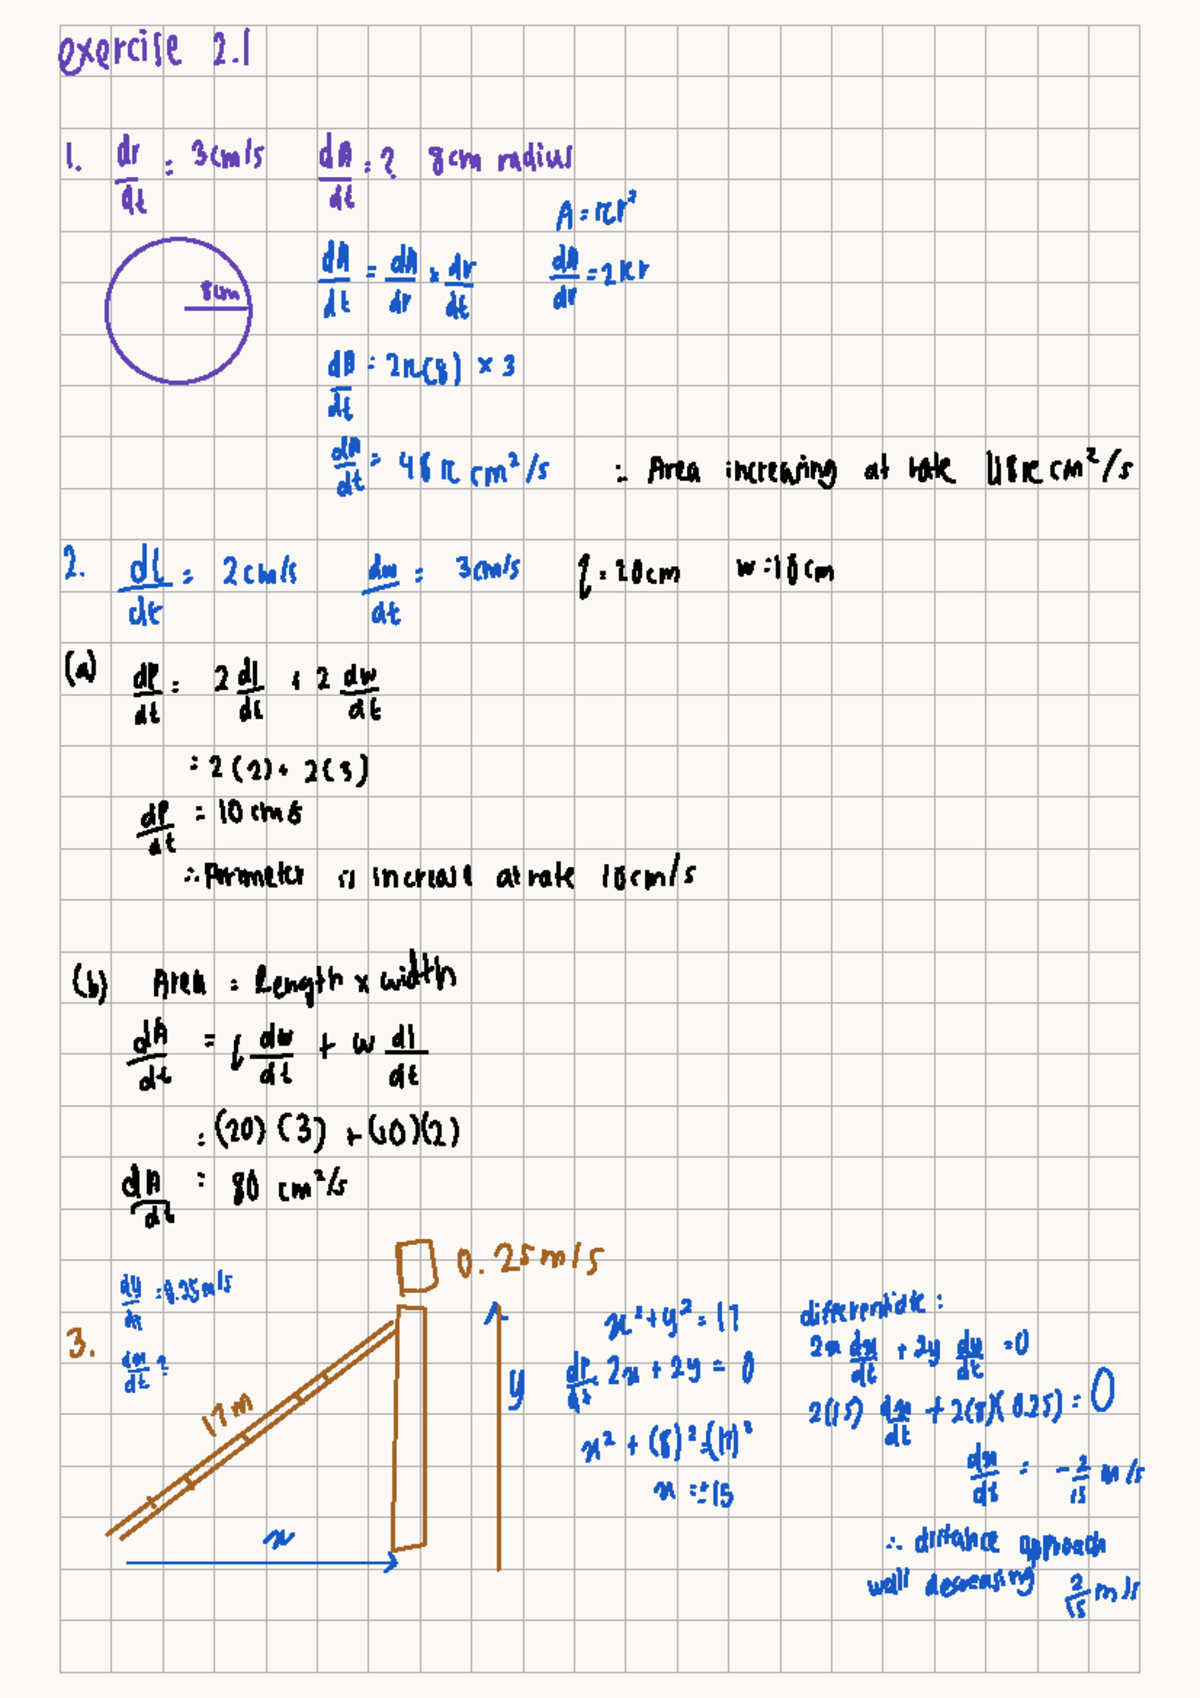 exercise 2.1
1. dr/dt = 3cm/s dA/dt = ? 8cm radius
A = πr²
8cm
dA/dt = dA/dr × dr/dt dA/dr = 2πr
dA/dt = 2π(8) × 3
dA/dt = 48π cm²/s ∴ Area increasing at rate 48π cm²/s
2. dl/dt = 2cm/s dw/dt = 3cm/s l = 20cm w = 10cm
(a) dP/dt = 2 dl/dt + 2 dw/dt
= 2(2) + 2(3)
dP/dt = 10 cm/s
∴ Perimeter is increase at rate 10cm/s
(b) Area = Length × width
dA/dt = l dw/dt + w dl/dt
= (20)(3) + (10)(2)
dA/dt = 80 cm²/s
0.25m/s
3. dy/dt = 0.25m/s
dx/dt ?
17m
x
y
x² + y² = 17
dP/dt 2x + 2y = 0
x² + (8)² = (17)²
x = ±15
differentiate:
2x dx/dt + 2y dy/dt = 0
2(15) dx/dt + 2(8)(0.25) = 0
dx/dt = -2/15 m/s
∴ distance approach
wall decreasing 2/15 m/s